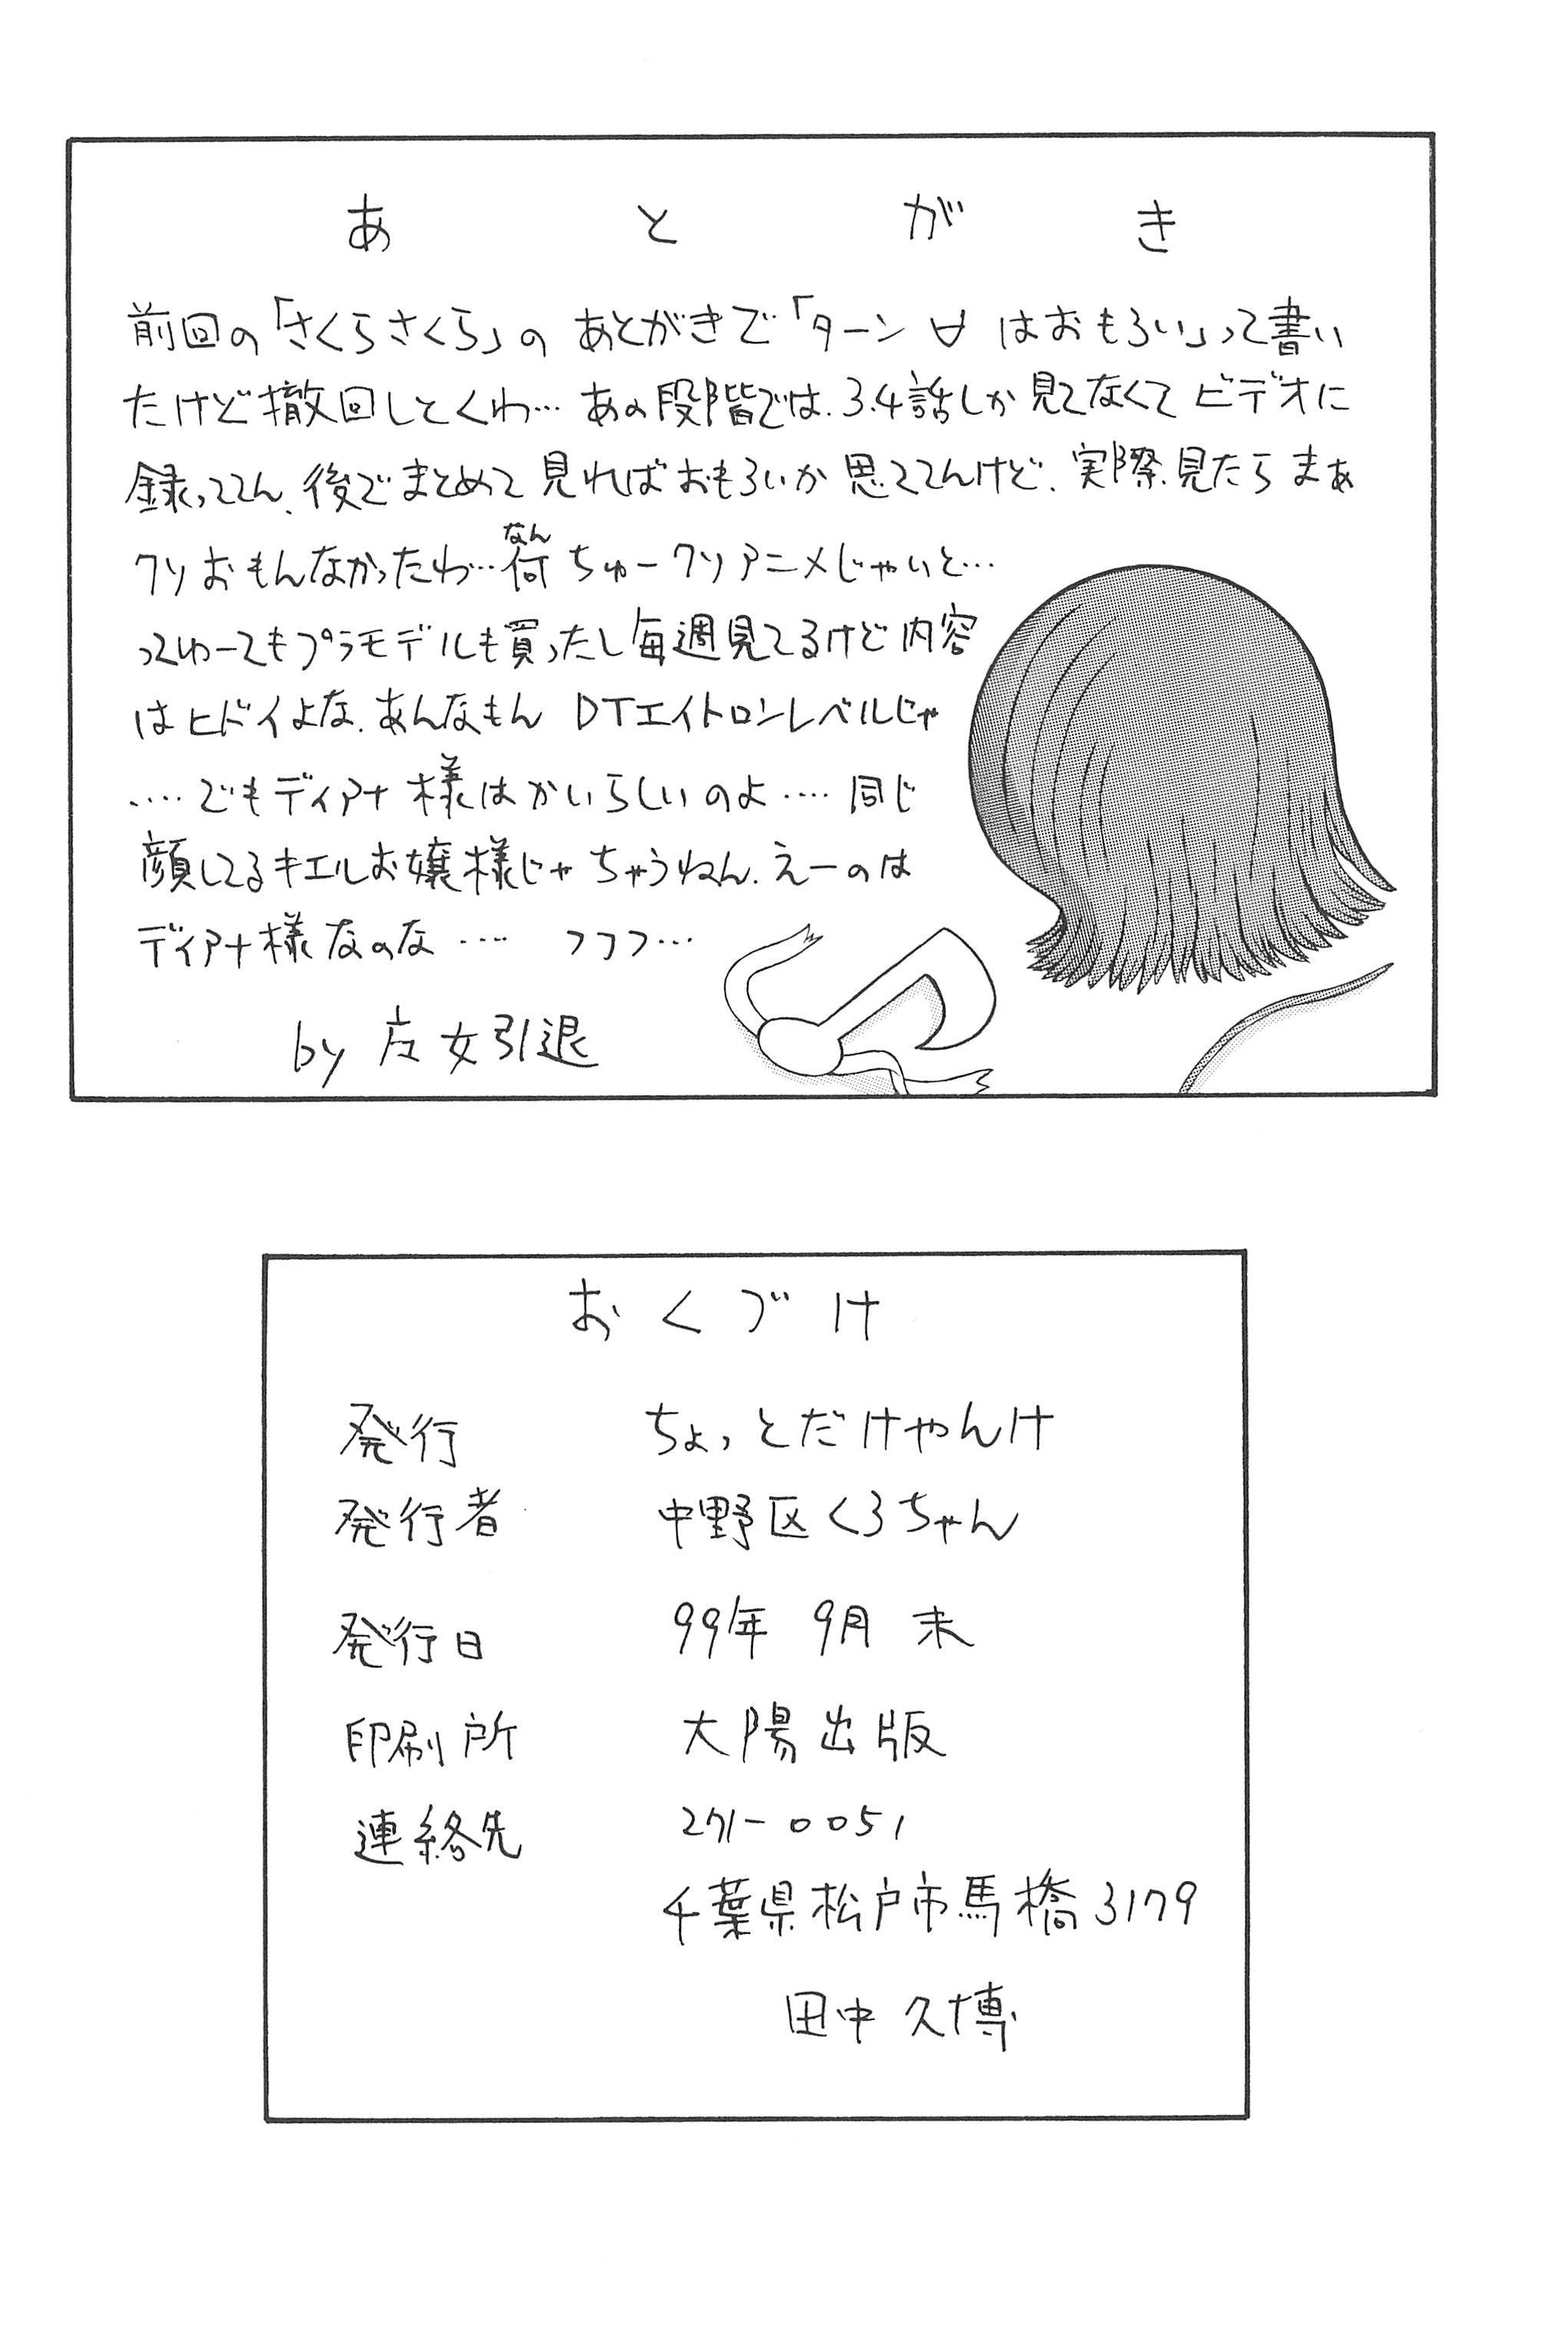 あとがき
前回の「さくらさくら」の あとがきで「ターン∀ はおもろい」って書い
たけど撤回しとくわ… あの段階では、3.4話しか見てなくてビデオに
録っててん、後でまとめて見ればおもろいか思ててんけど、実際見たらまぁ
なん
クソおもんなかったわ…何ちゅークソアニメじゃいと…
ってゆーてもプラモデルも買ったし毎週見てるけど内容
はヒドイよな、あんなもん DTエイトロンレベルじゃ
‥‥でもディアナ様はかいらしいのよ‥‥同じ
顔してるキエルお嬢様じゃちゃうねん、えーのは
ディアナ様なのな‥‥ フフフ…
by 女引退
おくづけ
発行 ちょっとだけやんけ
発行者 中野区くろちゃん
発行日 99年 9月 末
印刷所 大陽出版
連絡先 271-0051
千葉県松戸市馬橋3179
田中 久博